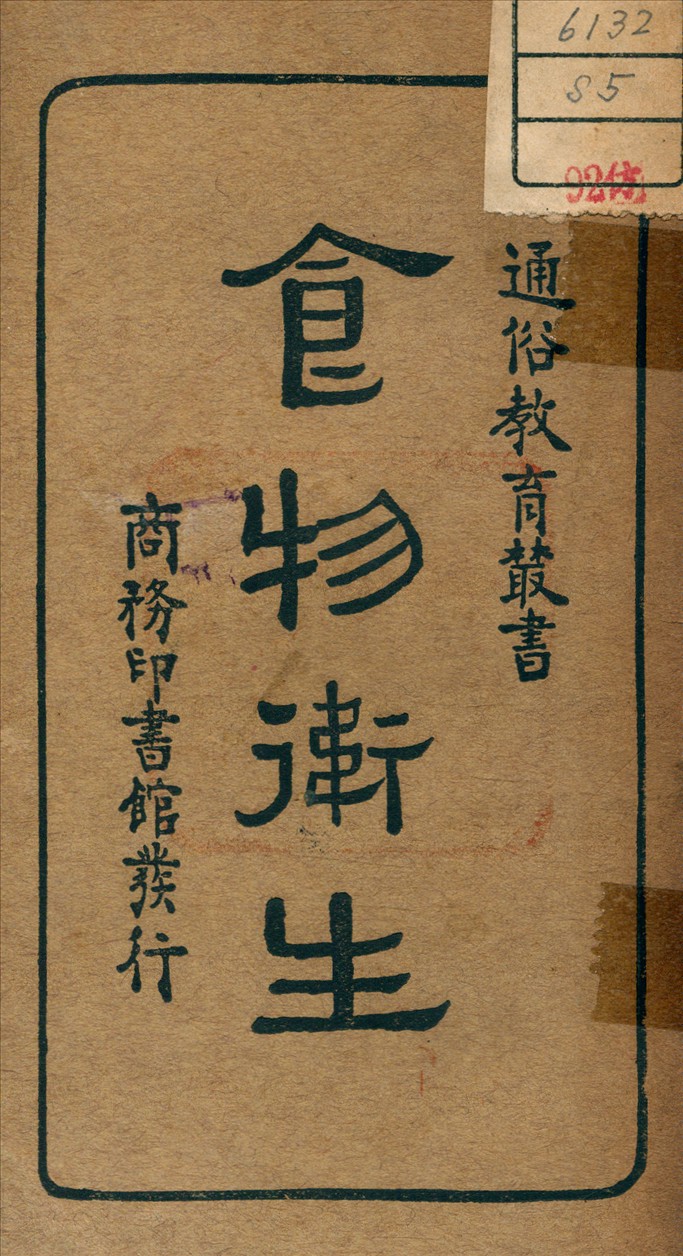 通俗教育叢書
食物衛生
商務印書館發行
6132
S5